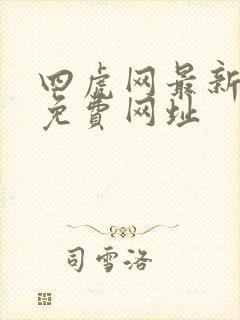 四虎网最新
免費网址
司雪洛